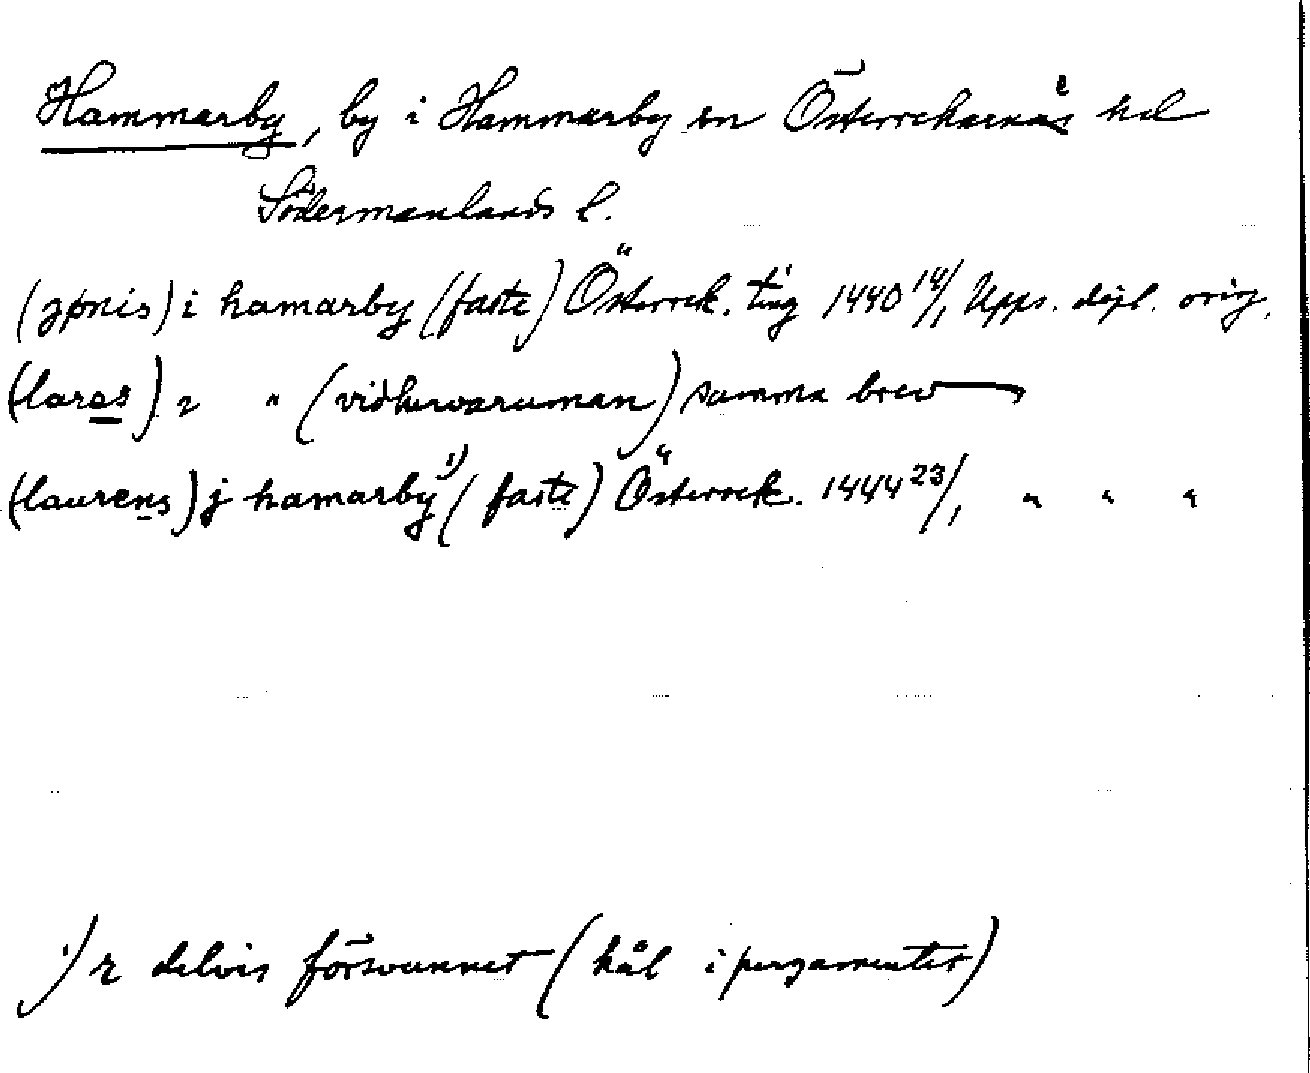 Hammarby, by i Hammarby sn Österrekarne hd
Södermanlands l.
(jpnis) i hamarby (faste) Österrek. ting 1440 14/1 Upps. dipl. orig.
(lares) 2 " (vidhervaruman) samma brev
(laurens) j hamarby 1) (faste) Österrek. 1444 23/1 " " "
1) r delvis försvunnet (hål i pergamentet)